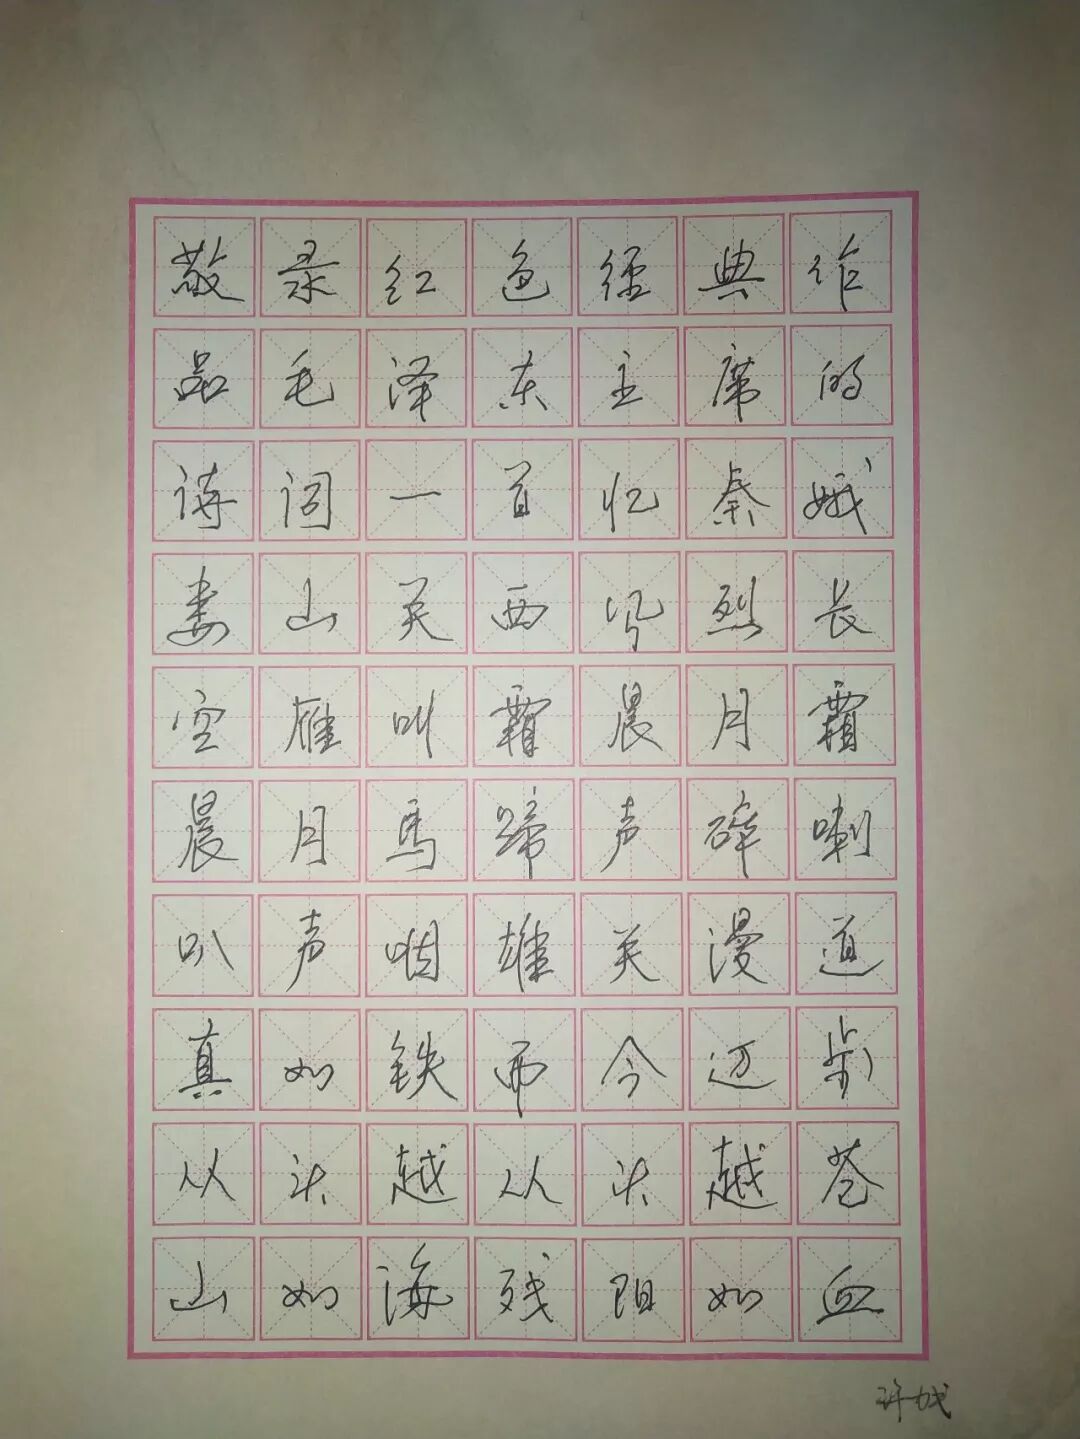 敬录红色经典作
品毛泽东主席的
诗词一首忆秦娥
娄山关西风烈长
空雁叫霜晨月霜
晨月马蹄声碎喇
叭声咽雄关漫道
真如铁而今迈步
从头越从头越苍
山如海残阳如血